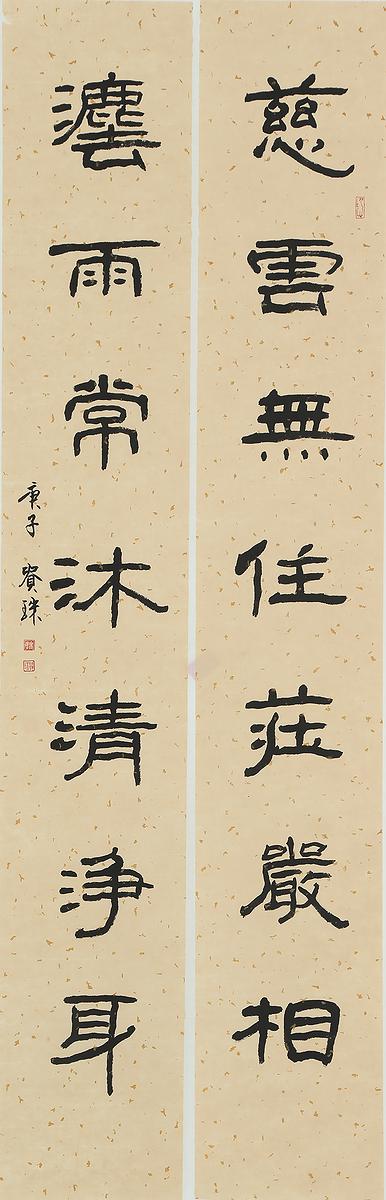 慈雲無住莊嚴相
灋雨常沐清淨耳
庚子 珠